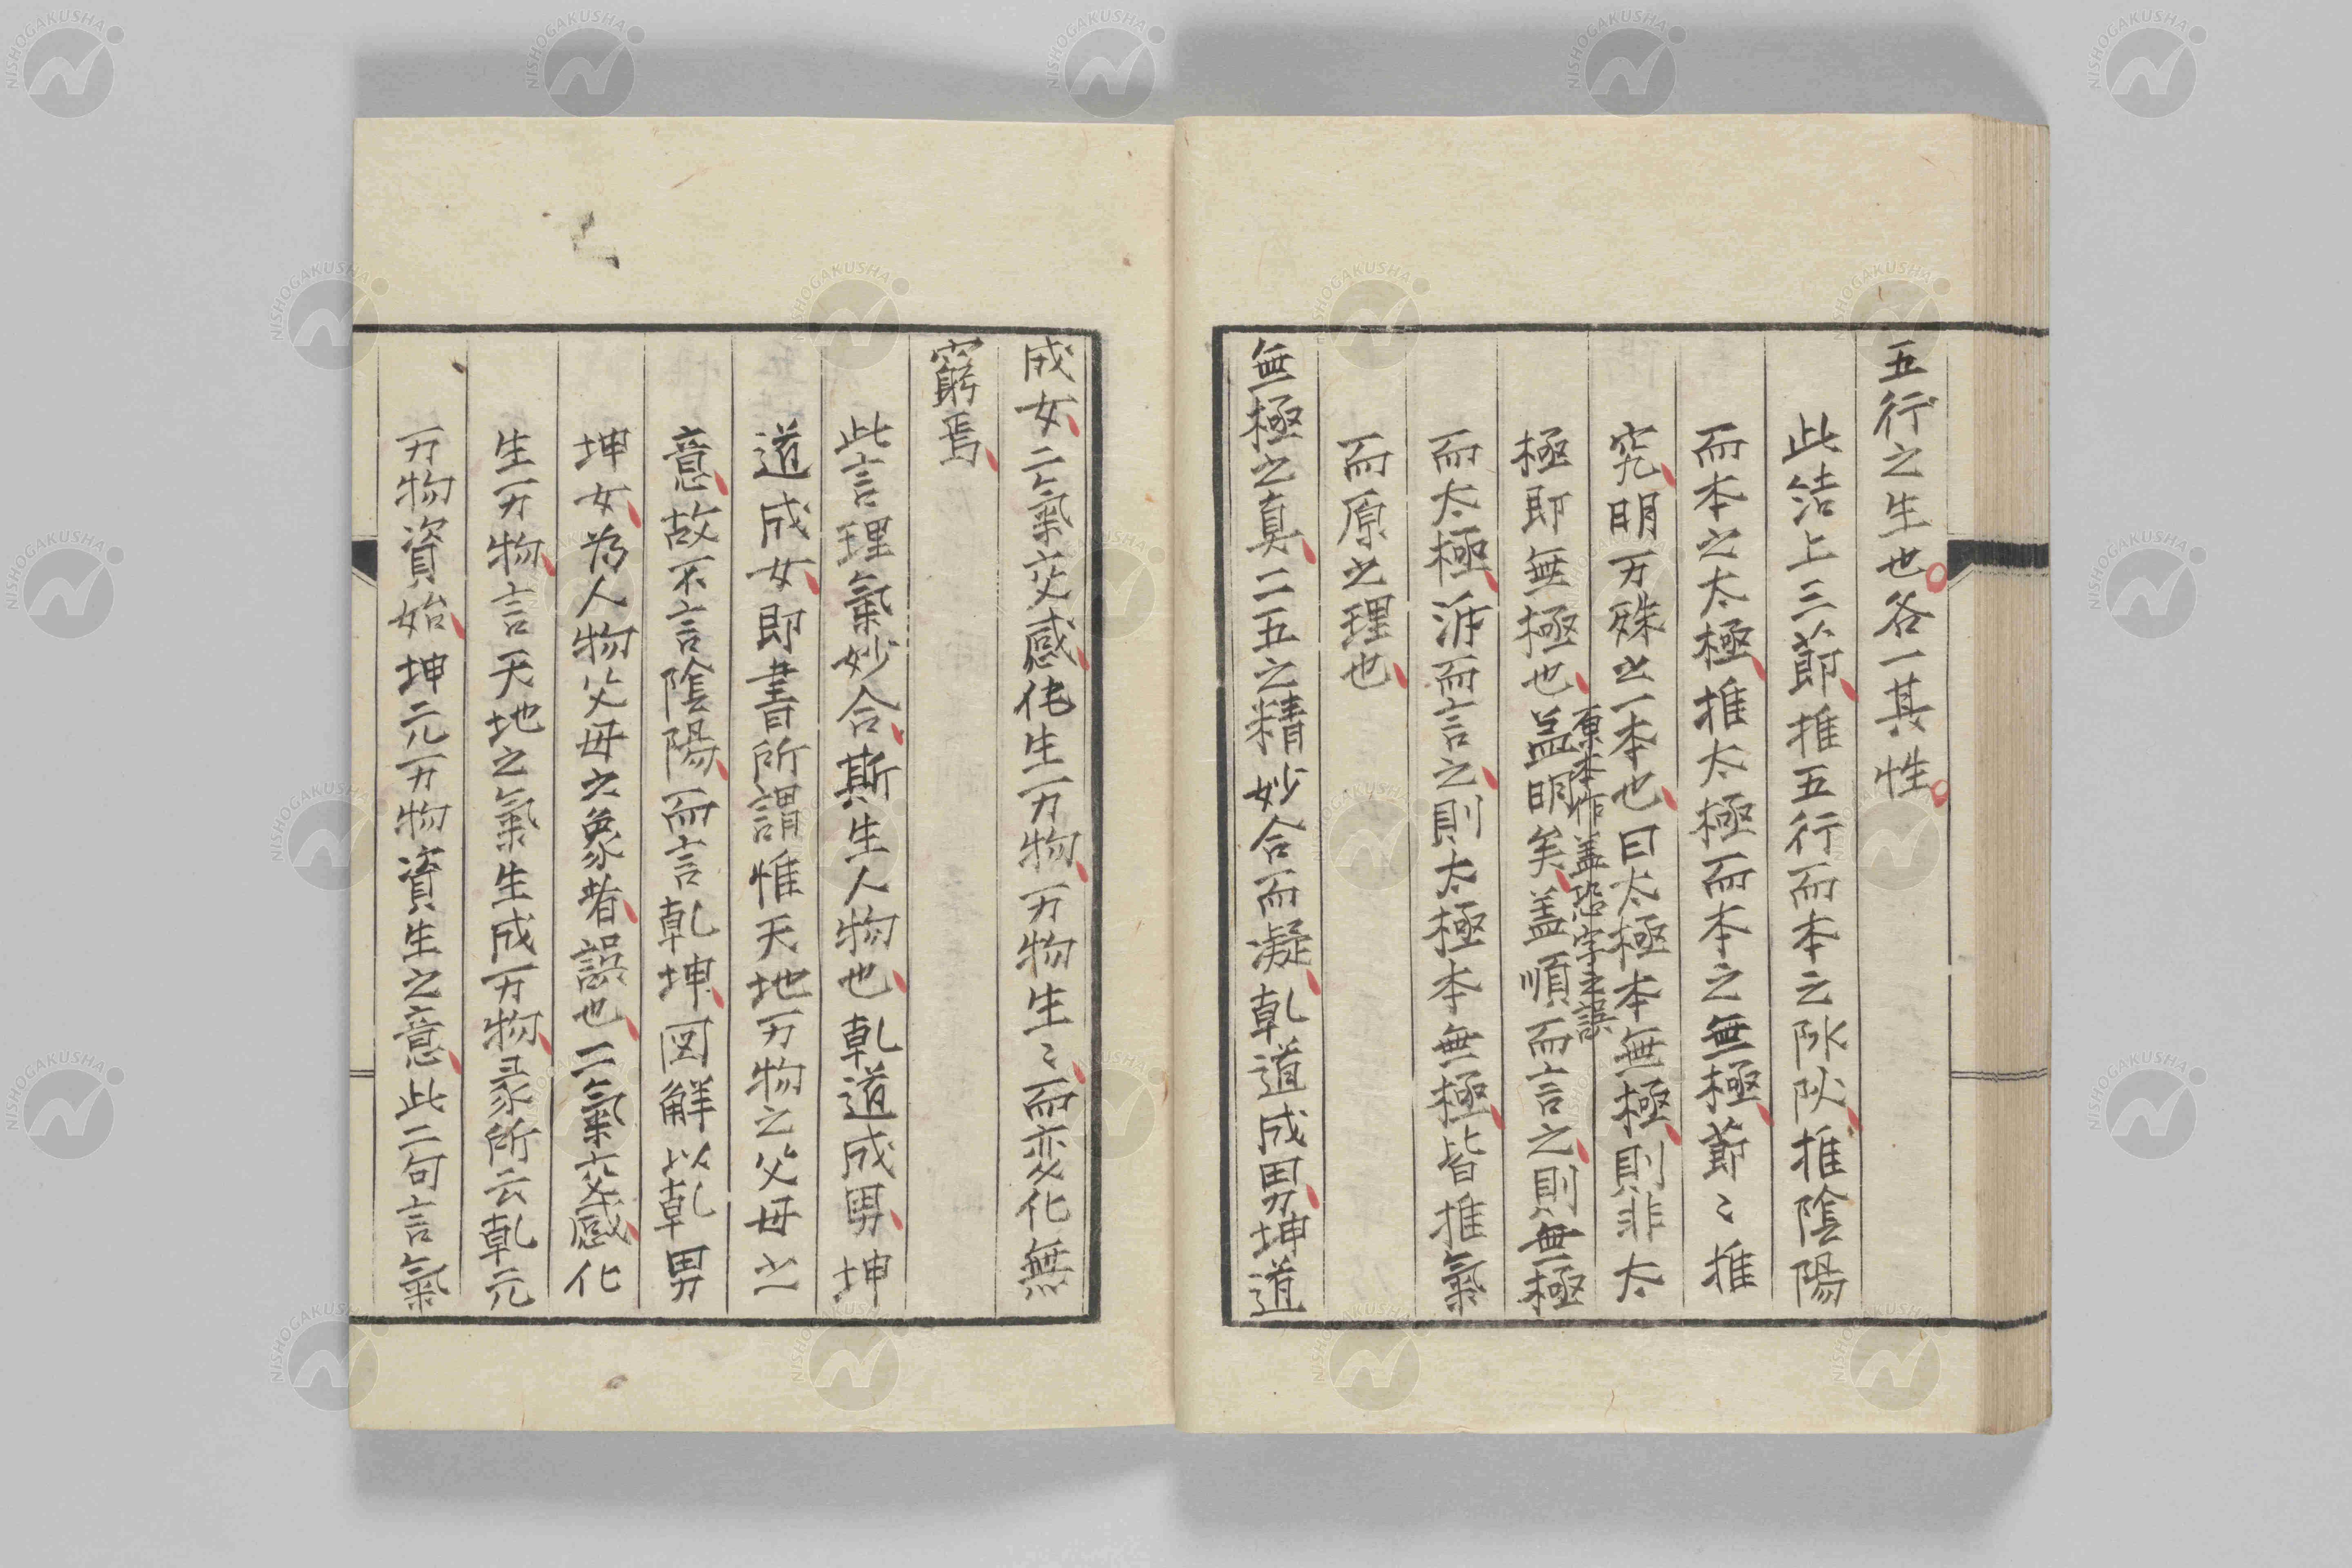 五行之生也各一其性
此結上三節推五行而本之阥阦推陰陽
而本之太極推太極而本之無極節〻推
究明万殊之一本也曰太極本無極則非太
極即無極也盖明矣盖順而言之則無極
原本作盖恐字之誤
而太極泝而言之則太極本無極皆推氣
而原之理也
無極之真二五之精妙合而凝乹道成男坤道
成女二氣交感化生万物万物生〻而変化無
窮焉
此言理氣妙合斯生人物也乹道成男坤
道成女即書所謂惟天地万物之父母之
意故不言陰陽而言乹坤図解以乹男
坤女为人物父母之象者誤也二氣交感化
生万物言天地之氣生成万物彖所云乹元
万物資始坤元万物資生之意此二句言氣
NISHOGAKUSHA